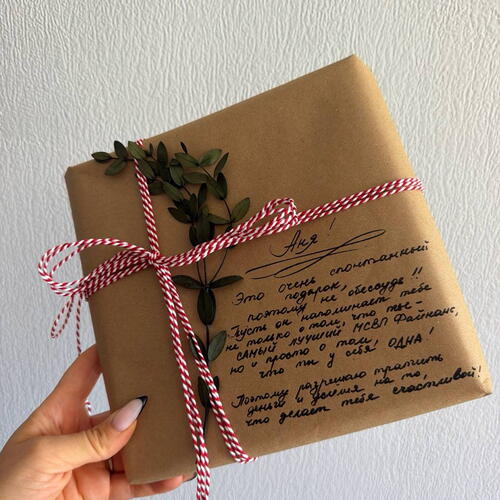 Аня!
Это очень спонтанный
подарок,
поэтому не обессудь!!
Пусть он напоминает тебе
не только о том, что ты -
самый лучший МСВП Файнанс,
но и просто о том,
что ты у себя ОДНА!
Поэтому разрешаю тратить
деньги и время на то,
что делает тебя счастливой!